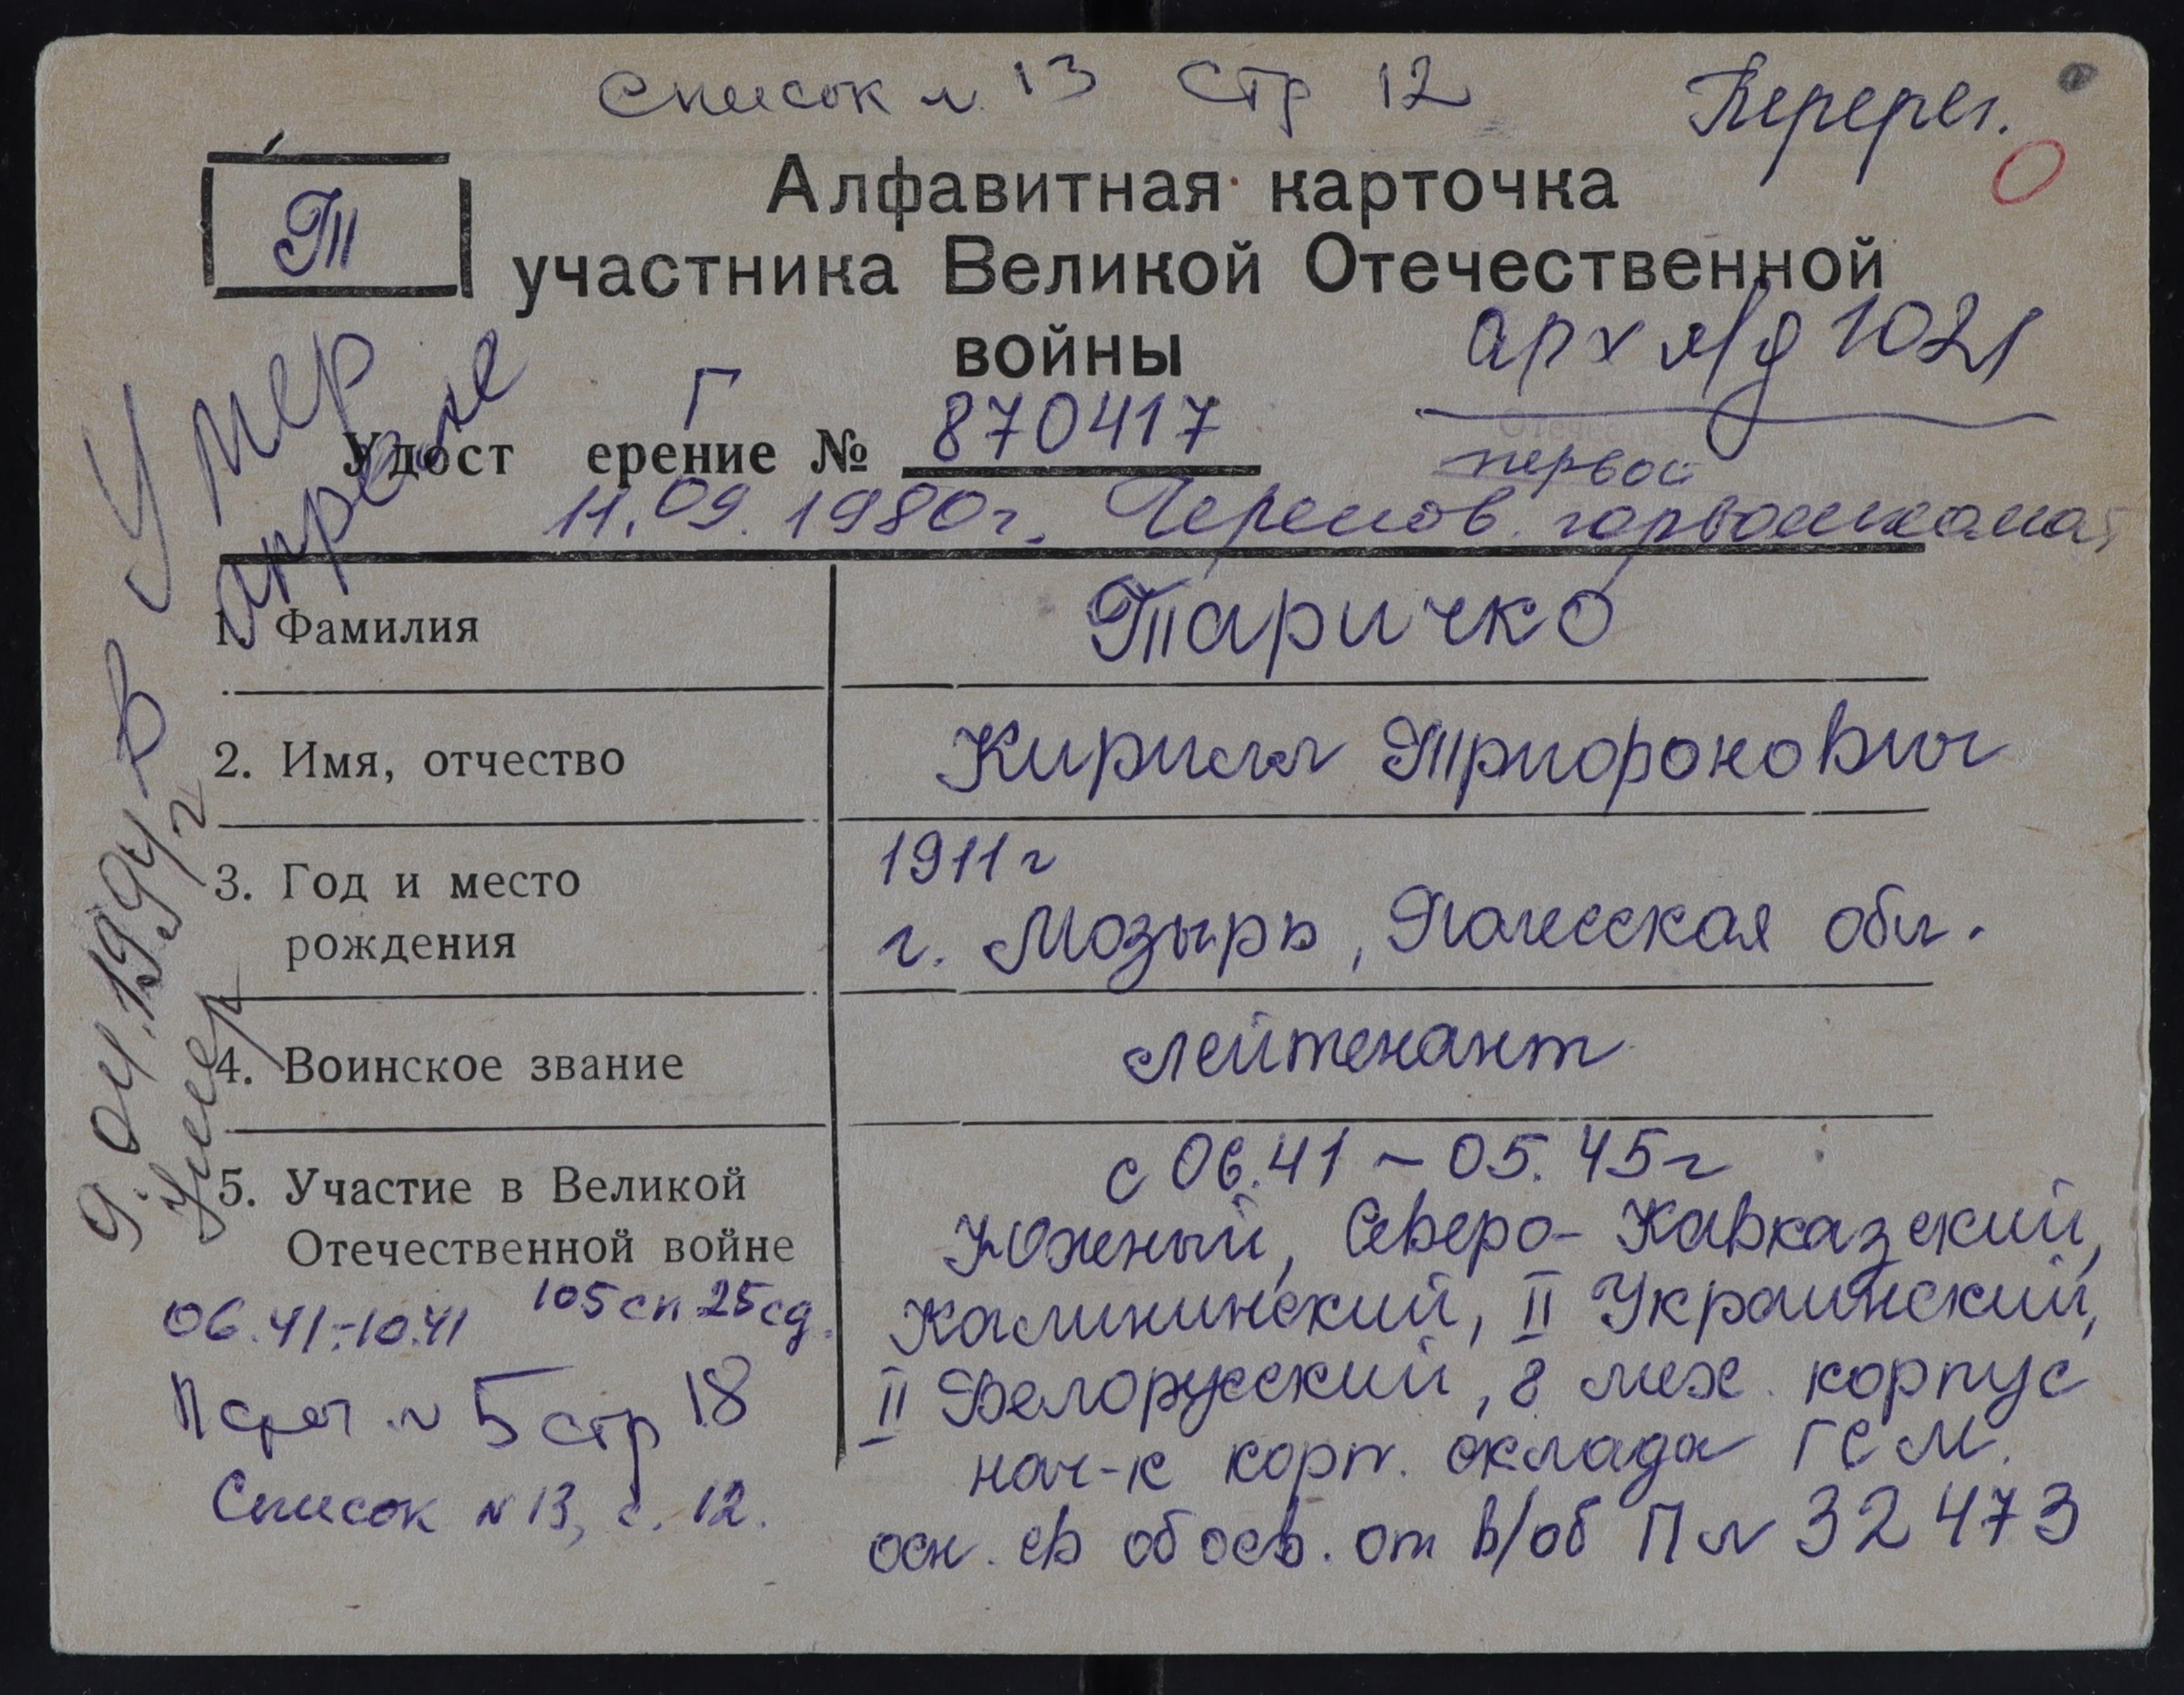 Список № 13 Стр 12
Перерег.
Т
Алфавитная карточка
участника Великой Отечественной
войны
арх л/д 1021
Г
Удост ерение № 870417
первой
11.09.1980г. Черемов. горвоенкомат
Умер
в апреле
9.04.1994 г
Умер
1. Фамилия
Таричко
2. Имя, отчество
Кирилл Трифонович
3. Год и место
рождения
1911 г
г. Мозырь, Полесская обл.
4. Воинское звание
лейтенант
5. Участие в Великой
Отечественной войне
с 06.41 – 05.45 г
Южный, Северо-Кавказский,
Калининский, II Украинский,
II Белорусский, 8 мех. корпус
нач-к корп. склада ГСМ.
осн. св об осв. от в/об П № 32473
06.41-10.41 105 сп 25 сд.
№ 5 стр 18
Список № 13, с. 12.